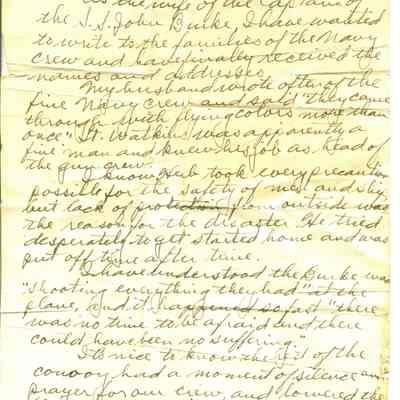 as the wife of the Captain of
the S.S. John Burke, I have wanted
to write to the families of the Navy
crew and have finally received the
names and addresses.
My husband wrote often of the
fine Navy crew and said "they came
through with flying colors more than
once." Lt. Watkins was apparently a
fine man and knew his job as head of
the gun crew.
I know Herb took every precaution
possible for the safety of men and ship
but lack of protection from outside was
the reason for the disaster. He tried
desperately to get started home and was
put off time after time.
I have understood the Burke was
"shooting everything they had" at the
plane, and it happened so fast "there
was no time to be afraid and there
could have been no suffering."
It is nice to know the rest of the
convoy had a moment of silence and
prayer for our crew, and lowered the